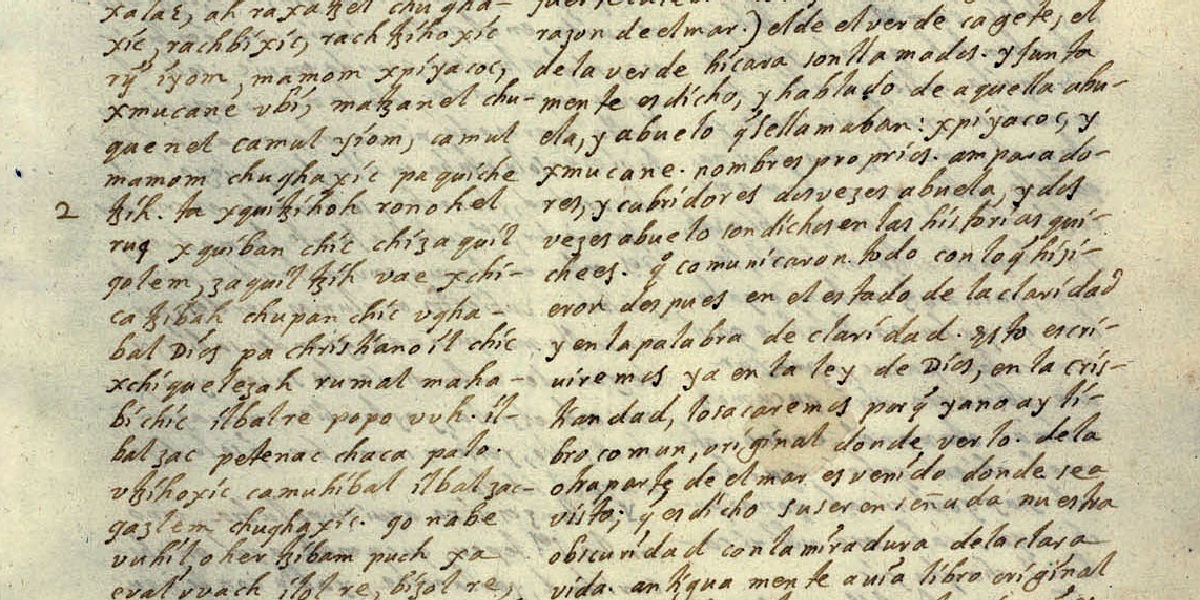 xalaɛ, ah raxaꜩel chugha-
xic, rachbixic, rach ꜩihoxic
rij iyom, mamom xpiyacoc,
xmucane ubi, maꜩanel chu-
quenel camul yiom, camul
mamom chughaxic pa quiche
2 ꜩih. ta xquiꜩihoh ronohel
ruq xquiban chic chi zaquil
qolem, zaquil ꜩih vae xchi-
ca ꜩibah chupan chic ugha-
bal Dios pa christianoil chic
xchiquelezah rumal maha-
bi chic ilbalre popo vuh. il-
bal zac petenac chaca palo.
uꜩihoxic camuhibal ilbal zac-
qazlem chughaxic. qo nabe
vuhil, oher ꜩibam puch xa
eval uvach ilol re, bizol re,
razon de el mar.) el de el verde cagete, el
de la verde hicara son llamados. y junta
mente es dicho, y hablado de aquella abu-
ela, y abuelo q̃ se llamaban: xpiyacoc, y
xmucane. nombres proprios. amparado-
res, y cubridores dos vezes abuela, y dos
vezes abuelo son dichos en las historias qui-
chees. q̃ comunicaron todo con lo q̃ hizi-
eron despues en el estado de la claridad
y en la palabra de claridad. Esto escri-
uiremos ya en la ley de Dios, en la cris-
tiandad, lo sacaremos porq̃ ya no ay li-
bro comun, original donde verlo. de la
otra parte de el mar es venido donde sea
visto; q̃ es dicho su ser enseñada nuestra
obscuridad con la miradura de la clara
vida. antiguamente auia libro original